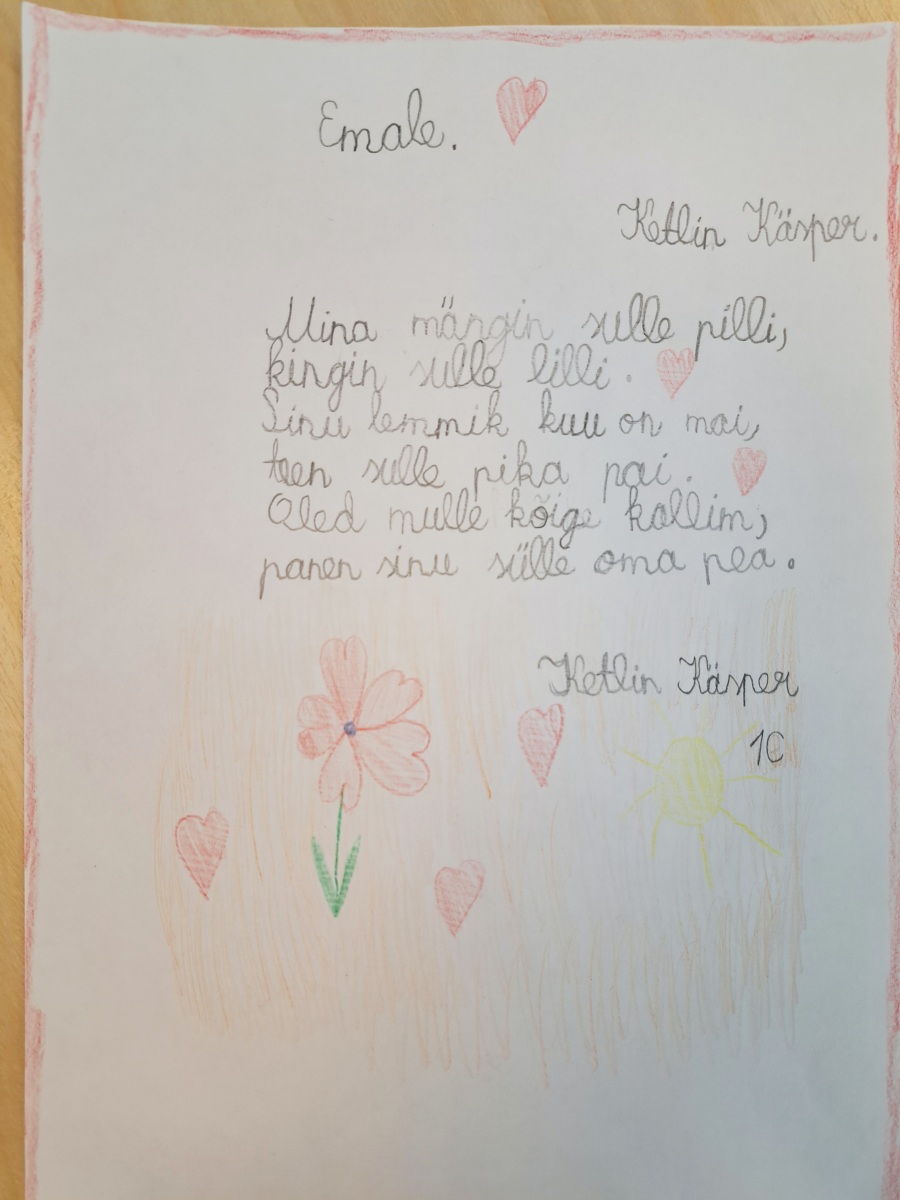 Emale.
Ketlin Käsper.
Mina mängin sulle pilli,
kingin sulle lilli.
Sinu lemmik kuu on mai,
teen sulle pika pai.
Oled mulle kõige kallim,
panen sinu sülle oma pea.
Ketlin Käsper
1C